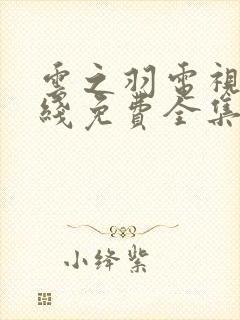 雲之羽電視
綫免費全集
小绛紫